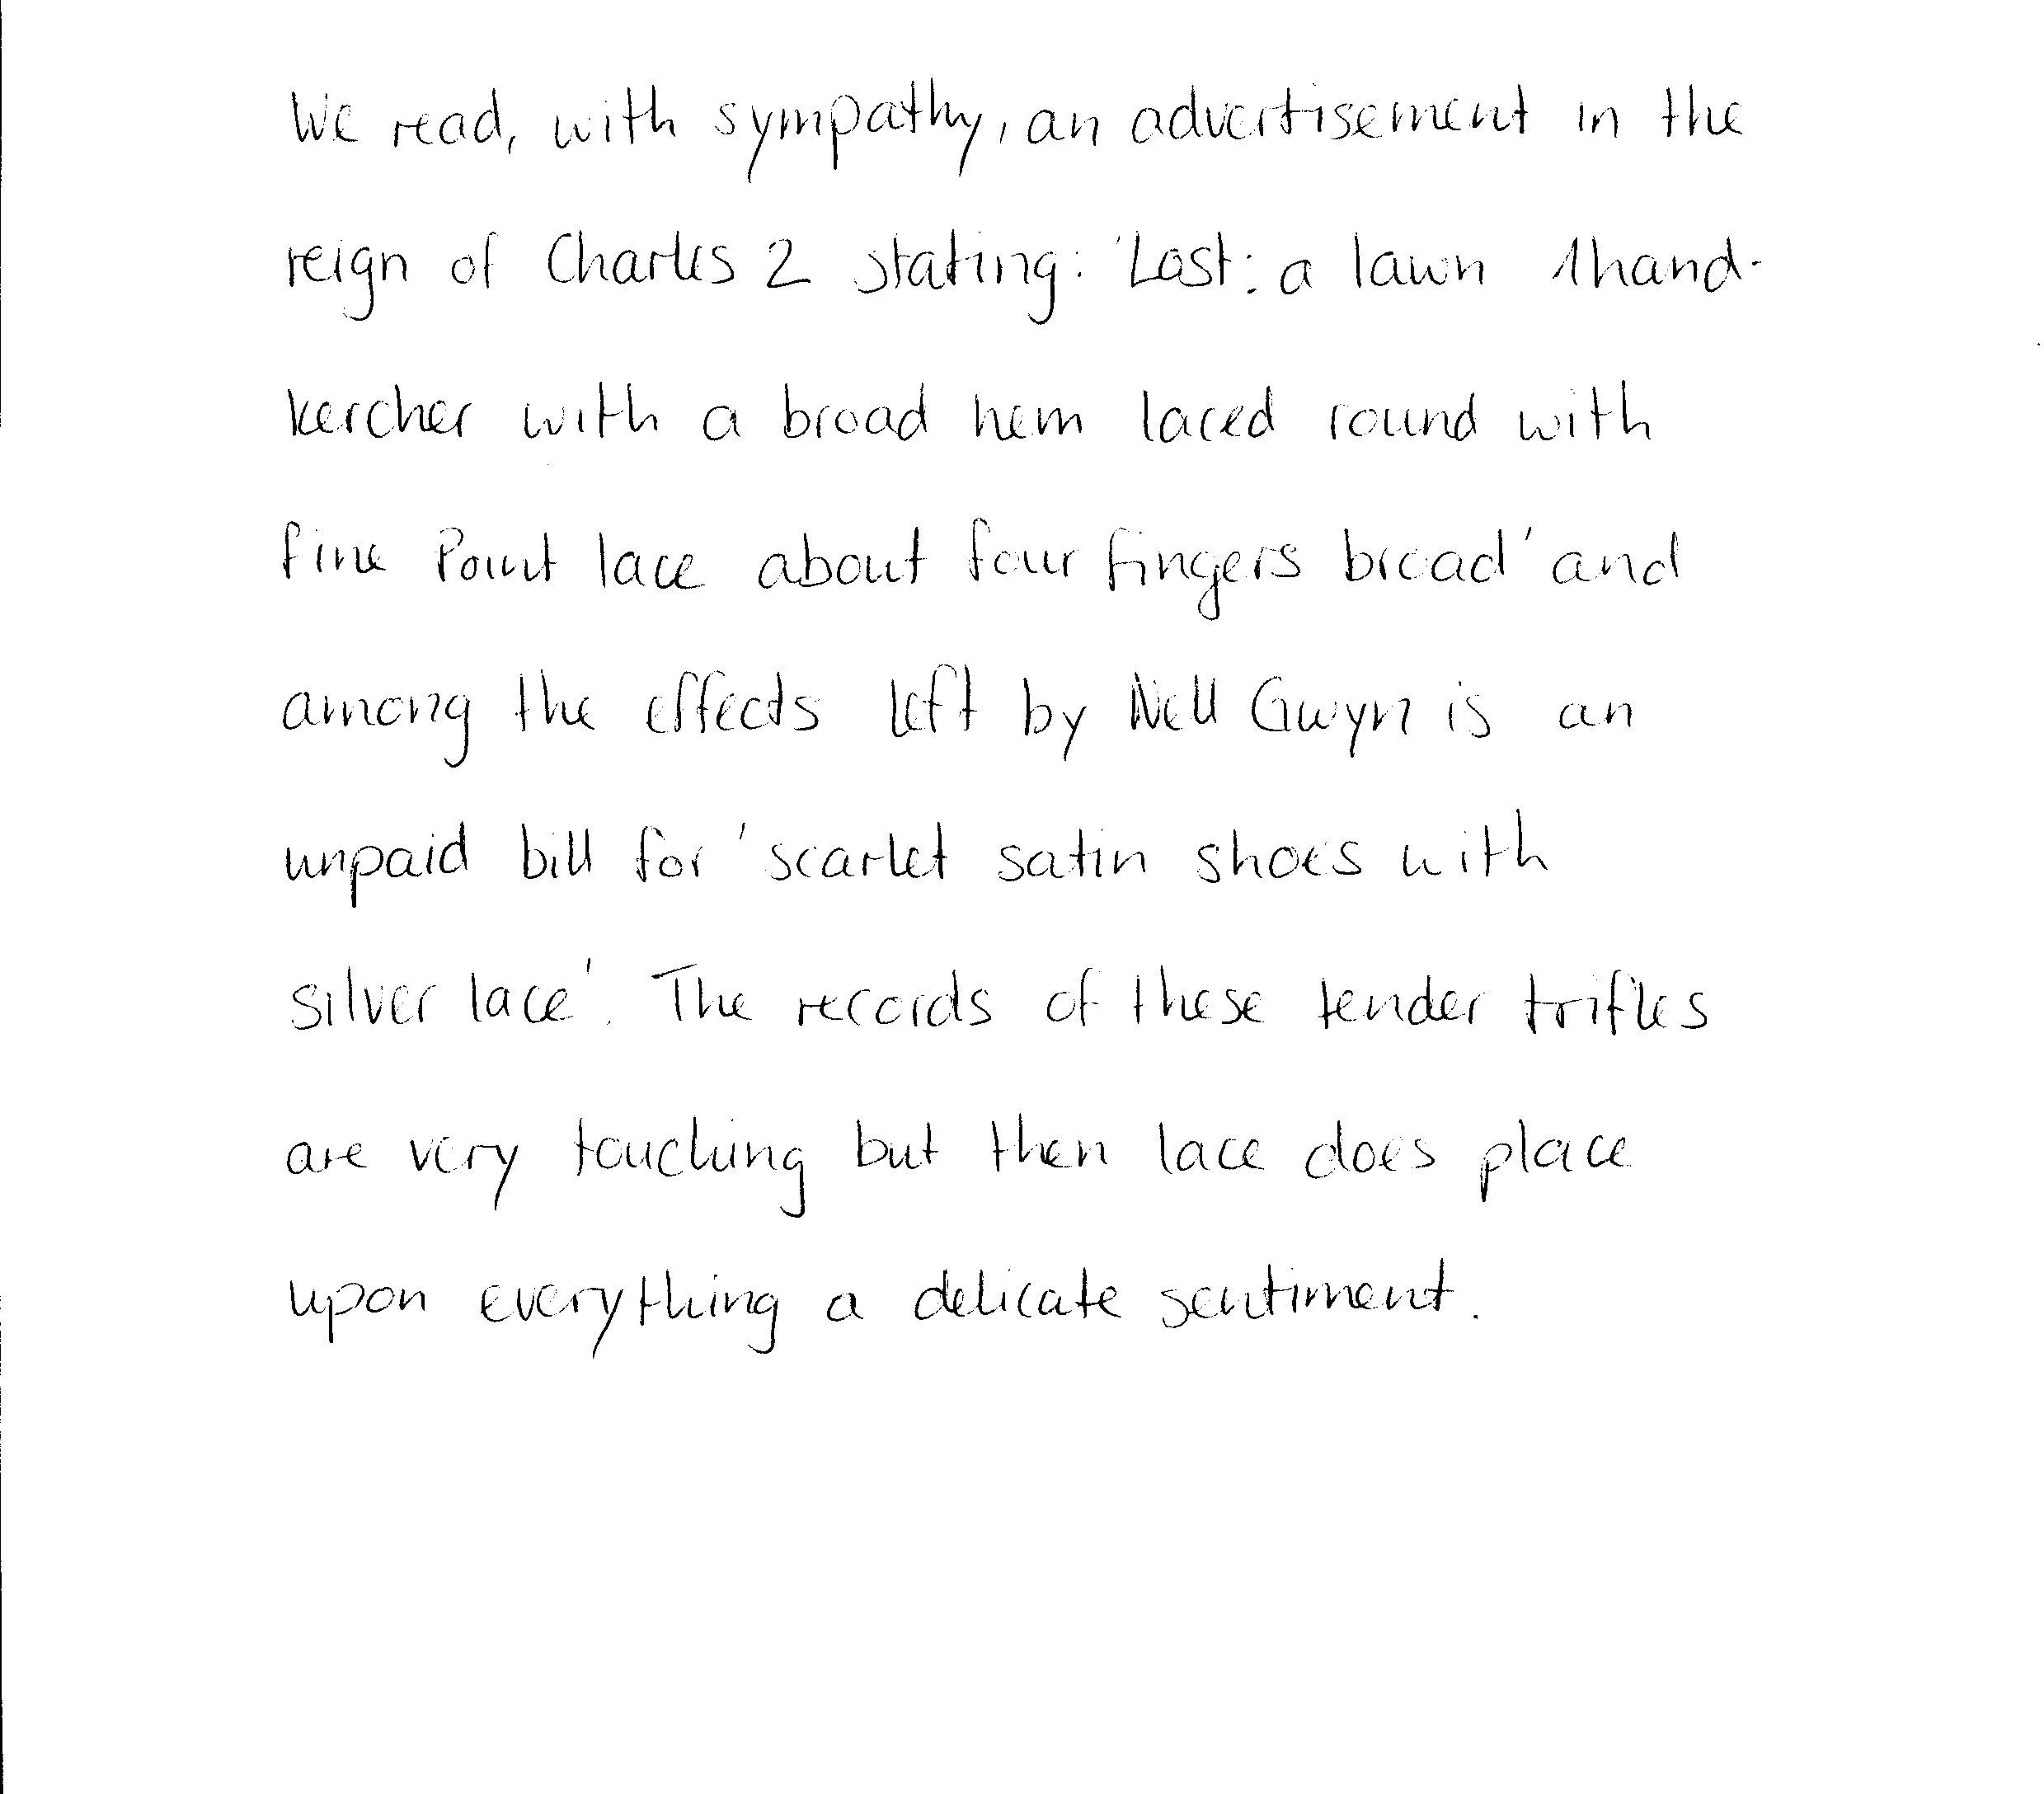 We read, with sympathy, an advertisement in the
reign of Charles 2 stating: 'Lost: a lawn 1hand-
kercher with a broad hem laced round with
fine Point lace about four fingers broad' and
among the effects left by Nell Gwyn is an
unpaid bill for 'scarlet satin shoes with
silver lace'. The records of these tender trifles
are very touching but then lace does place
upon everything a delicate sentiment.